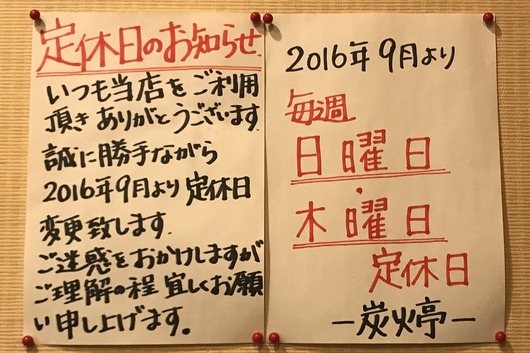 定休日のお知らせ
いつも当店をご利用
頂きありがとうございます
誠に勝手ながら
2016年9月より定休日
変更致します。
ご迷惑をおかけしますが
ご理解の程宜しくお願
い申し上げます。
2016年9月より
毎週
日曜日
・
木曜日
定休日
―炭火亭―